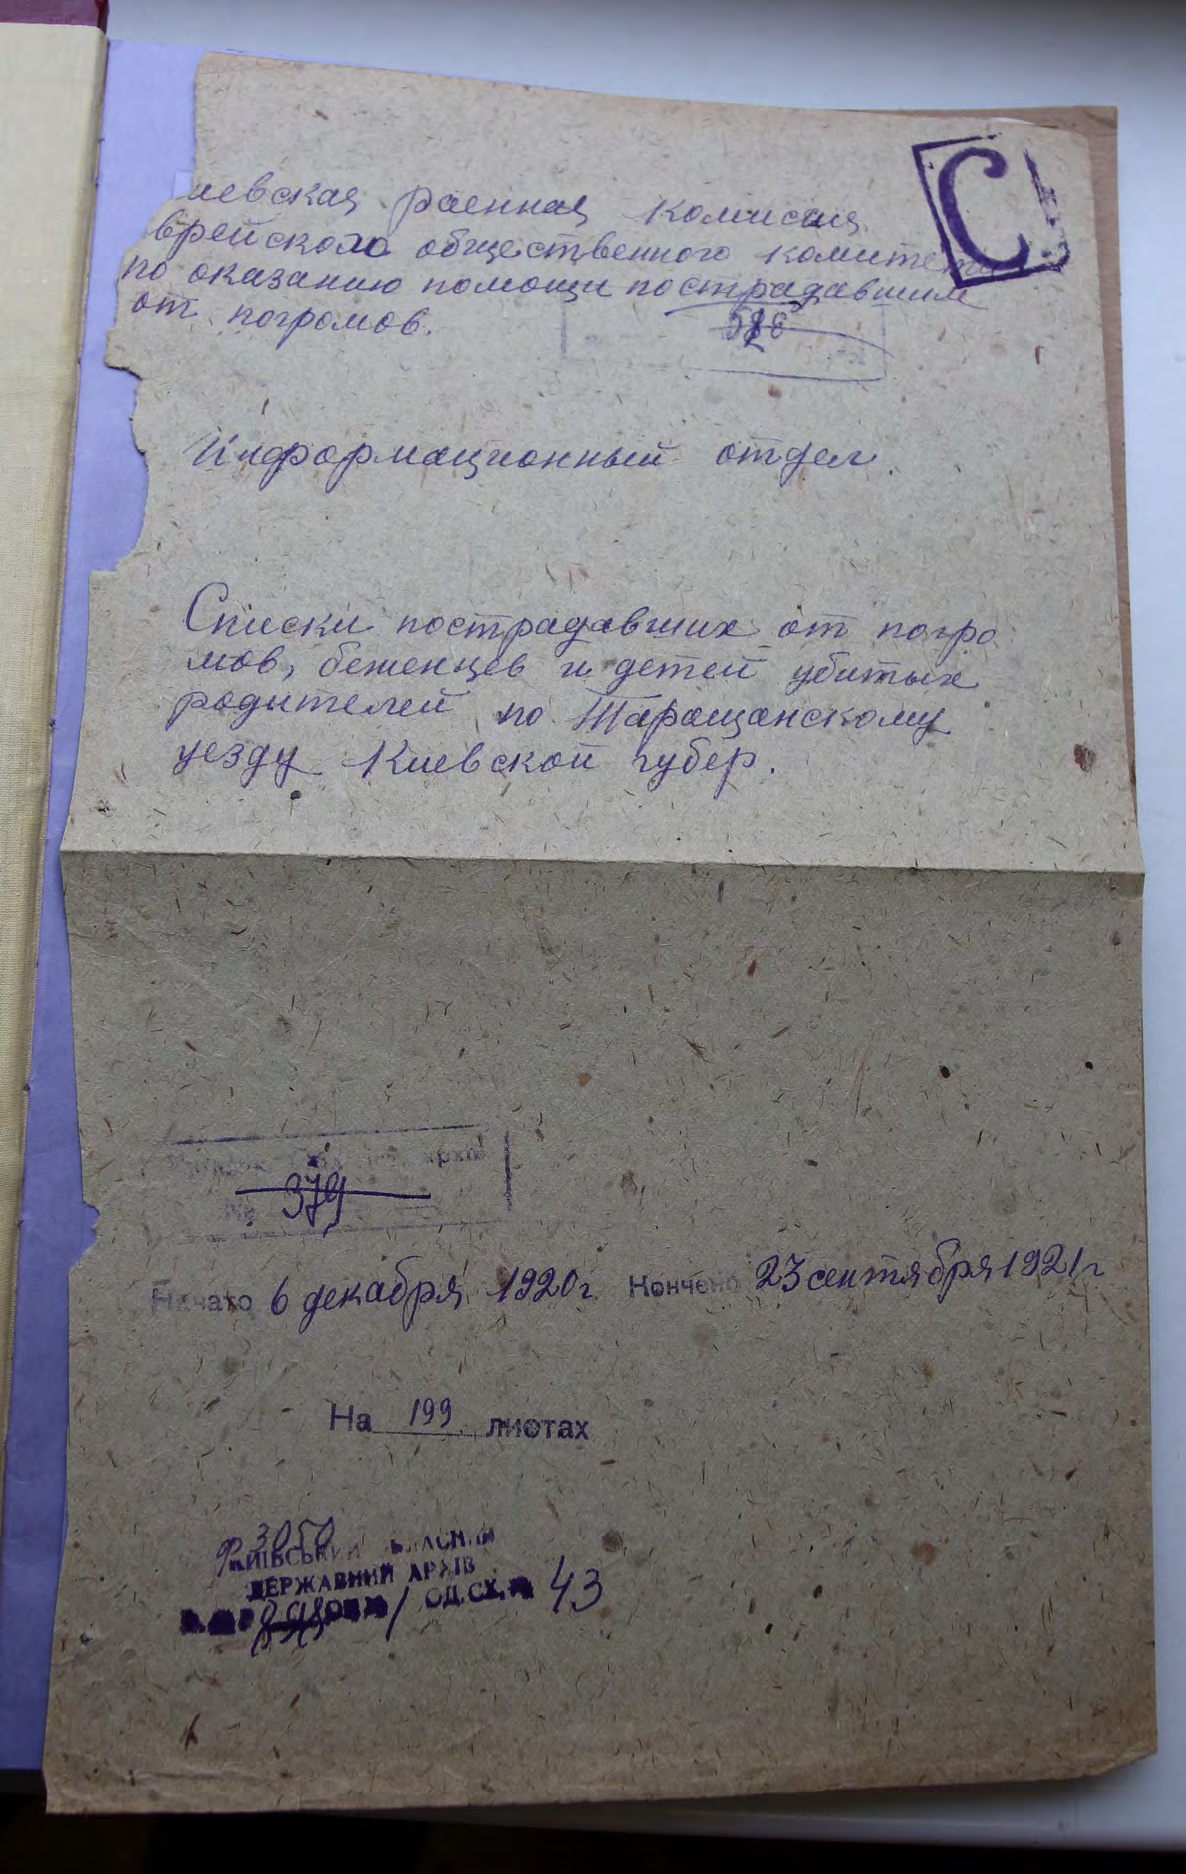 С
иевская раенная комиссия
врейского общественного комитета
по оказанию помощи пострадавшим
от погромов.
Информационный отдел.
Списки пострадавших от погро
мов, беженцев и детей убитых
родителей по Таращанскому
уезду Киевской губер.
379
Начато 6 декабря 1920 г. Кончено 23 сентября 1921 г
На 199 листах
Ф 3050
КИЇВСЬКИЙ ОБЛАСНИЙ
ДЕРЖАВНИЙ АРХІВ
1 ОД. СХ. № 43